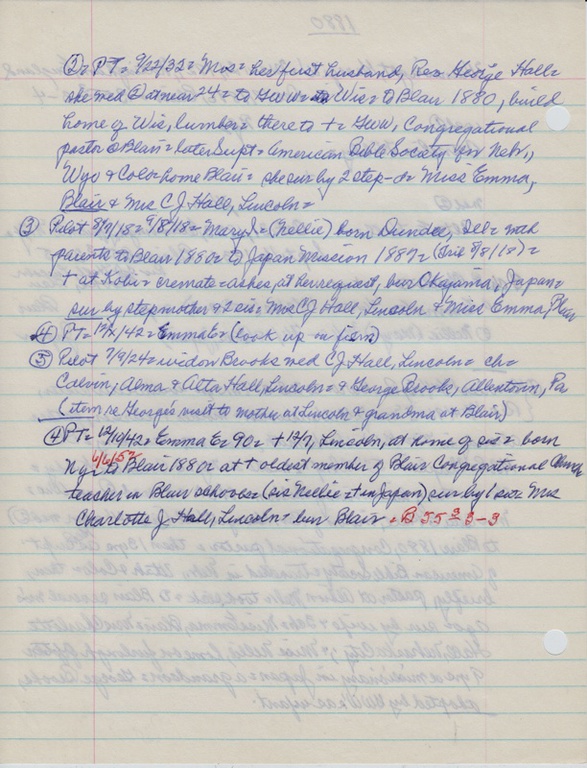 ② = PT = 9/22/32 = Mos = her first husband, Rev George Hall =
she med @ at near 24 = to GWW = Wis = to Blair 1880, build
home of Wis, lumber = there to † = GWW, Congregational
pastor @ Blair = later Supt = American Bible Society for Nebr.,
Wyo & Colo = home Blair = she sur by 2 step-d = Miss Emma,
Blair & Mrs CJ Hall, Lincoln =
③ Pilot 8/7/18 = 9/18/18 = Mary J = (Nellie) born Dundee, Ill = with
parents to Blair 1880 = to Japan Mission 1887 =
† at Kobe = cremate = ashes, at her request, bur Okayama, Japan =
sur by stepmother & 2 sis = Mrs CJ Hall, Lincoln & Miss Emma, Blair
④ PT = 12/2/42 = Emma E = (look up in firm)
⑤ Pilot 7/9/24 = widow Brooks med CJ Hall, Lincoln = ch =
Calvin, Alma & Atta Hall, Lincoln = & George Brooks, Allentown, Pa
(item re George's visit to mother at Lincoln & grandma at Blair)
④ PT = 12/10/42 = Emma E = 90 = † 12/7, Lincoln, at home of sis = born
NY 6/6/52 to Blair 1880 = at † oldest member of Blair Congregational Church
teacher in Blair schools = (sis Nellie = † in Japan) sur by 1 sis = Mrs
Charlotte J Hall, Lincoln = bur Blair = B 55 3 3-3